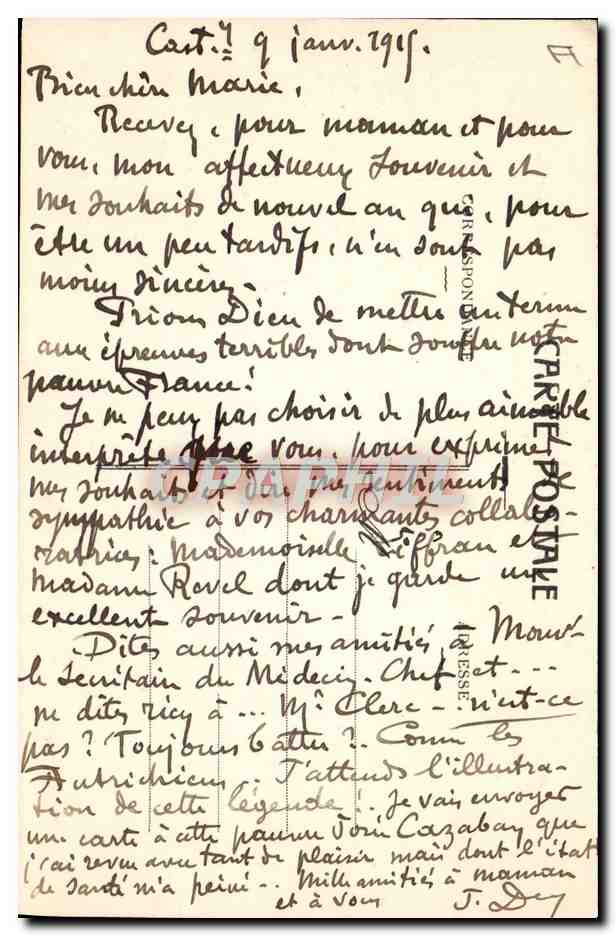 Cast.y 9 janv. 1915.
Bien chère Marie,
Recevez, pour maman et pour
vous, mon affectueux souvenir et
mes souhaits de nouvel an qui, pour
être un peu tardifs, n'en sont pas
moins sincères.
Prions Dieu de mettre un terme
aux épreuves terribles dont souffre notre
pauvre France!
Je ne peux pas choisir de plus aimable
interprète que vous, pour exprimer
mes souhaits et dire mes sentiments de
sympathie à vos charmantes collabo-
ratrices: Mademoiselle Riffran et
Madame Revel dont je garde un
excellent souvenir -
Dites aussi mes amitiés à Monsr
le Secrétaire du Médecin-Chef et ---
ne dites rien à ... Mr Clerc - . n'est-ce
pas? Toujours battu?.. Comme les
Autrichiens.. J'attends l'illustra-
tion de cette légende!. Je vais envoyer
une carte à cette pauvre Cazabay que
j'ai revue avec tant de plaisir mais dont l'état
de santé m'a peiné -. Mille amitiés à maman
et à vous J.
CORRESPONDANCE
CARTE POSTALE
ADRESSE
CPAPHIL